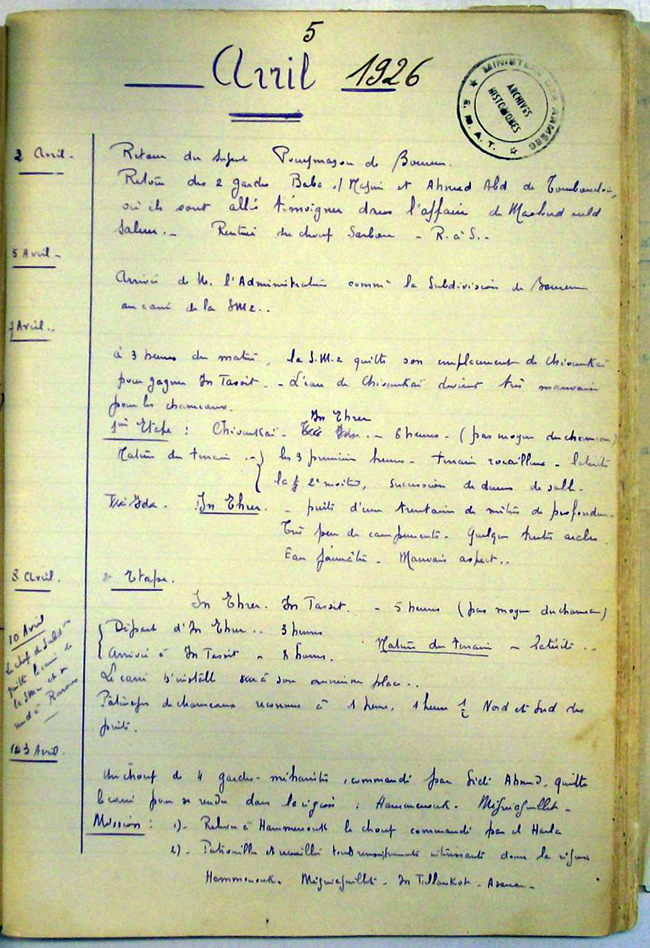 5
Avril 1926
MINISTERE DES ARMEES
ARCHIVES HISTORIQUES
E. M. A. T.
2 Avril.
Retour du Sergt Pouymayon de Bourem.
Retour des 2 gardes Baba et Ahmed Abd de Tombouctou,
où ils sont allés témoigner dans l'affaire de Mouloud ould
Salem. - Rentrée du chouf - R. à S. -
5 Avril -
Arrivée de M. l'Administrateur commt la Subdivision de Bourem
au carré de la SM2..
7 Avril -
à 3 heures du matin, la S.M.2 quitte son emplacement de Chivankaï
pour gagner In Tassit. - L'eau de Chivankaï devient très mauvaise
pour les chameaux.
1ère Etape : Chivankaï - In Ehrer - 6 heures - (pas moyen du chameau)
Nature du terrain - les 3 premières heures - terrain rocailleux - latérite
la 2e moitié, succession de dunes de sable.
In Ehrer. - puits d'une trentaine de mètres de profondeur
Très peu de campements. Quelques tentes
Eau jaunâtre - Mauvais aspect..
8 Avril. 2e Etape.
In Ehrer. In Tassit. - 5 heures (pas moyen du chameau)
Départ d'In Ehrer.. 3 heures
Arrivée à In Tassit - 8 heures. Nature du terrain - latérite..
10 Avril
Le chef de Subdivon
quitte le carré de
la SM2 et se
rend à
Le carré s'installe à son ancienne place..
Pâturages de chameaux à 1 heure, 1 heure 1/2 Nord et Sud des
puits.
13 Avril.
Un chouf de 4 gardes-méharistes, commandé par Sidi Ahmed, quitte
le carré pour se rendre dans la région : Hammenouk. Miguiaguillet -
Mission : 1) - Relever à Hammenouk le chouf commandé par
2) - Patrouiller et recueillir tous renseignements intéressants dans la région
Hammenouk. Miguiaguillet - In Tillankot -